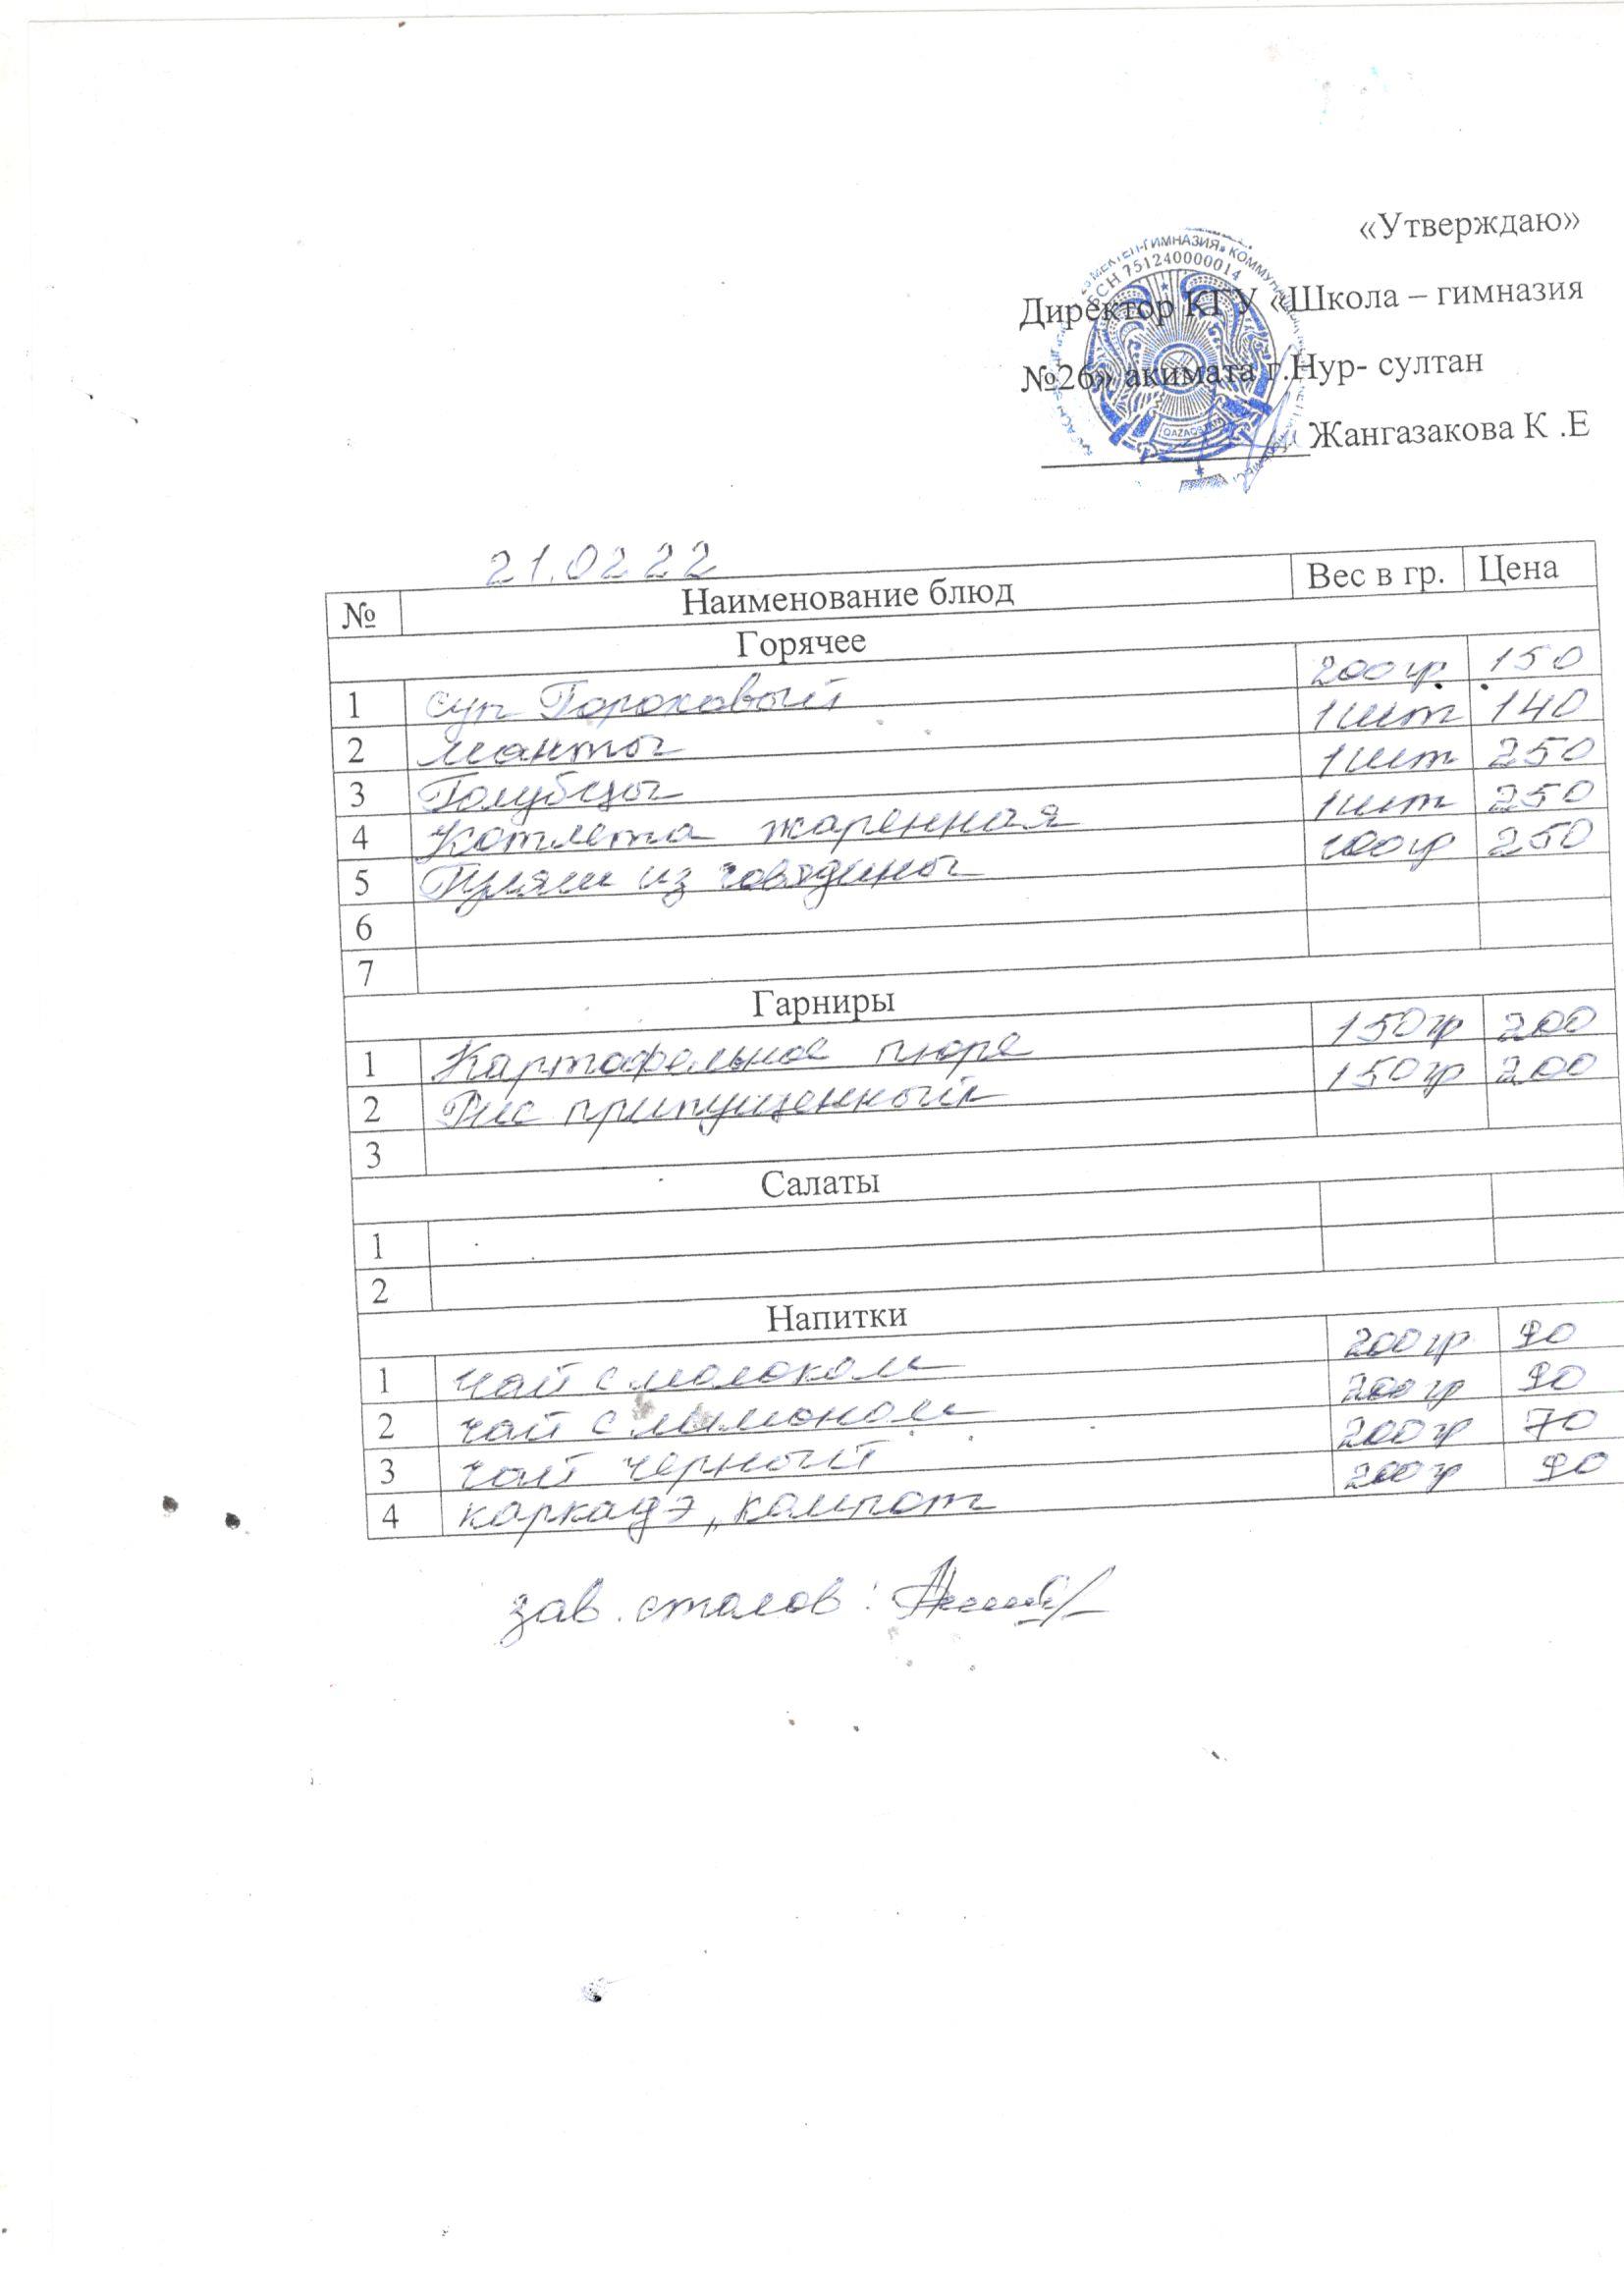 «Утверждаю»
Директор КГУ «Школа – гимназия
№26» акимата г.Нур- султан
Жангазакова К .Е
МЕКТЕП-ГИМНАЗИЯ» КОММУН
БСН 751240000014
QAZAQSTAN
21.02 22
№ Наименование блюд Вес в гр. Цена
Горячее
1 Суп Гороховый 200 гр 150
2 Манты 1 шт 140
3 Голубцы 1 шт 250
4 Котлета жаренная 1 шт 250
5 Гуляш из говядины 100 гр 250
6
7
Гарниры
1 Картофельное пюре 150 гр 200
2 Рис припущенный 150 гр 200
3
Салаты
1
2
Напитки
1 Чай с молоком 200 гр 90
2 Чай с лимоном 200 гр 90
3 Чай черный 200 гр 70
4 каркадэ, компот 200 гр 90
зав. столов: